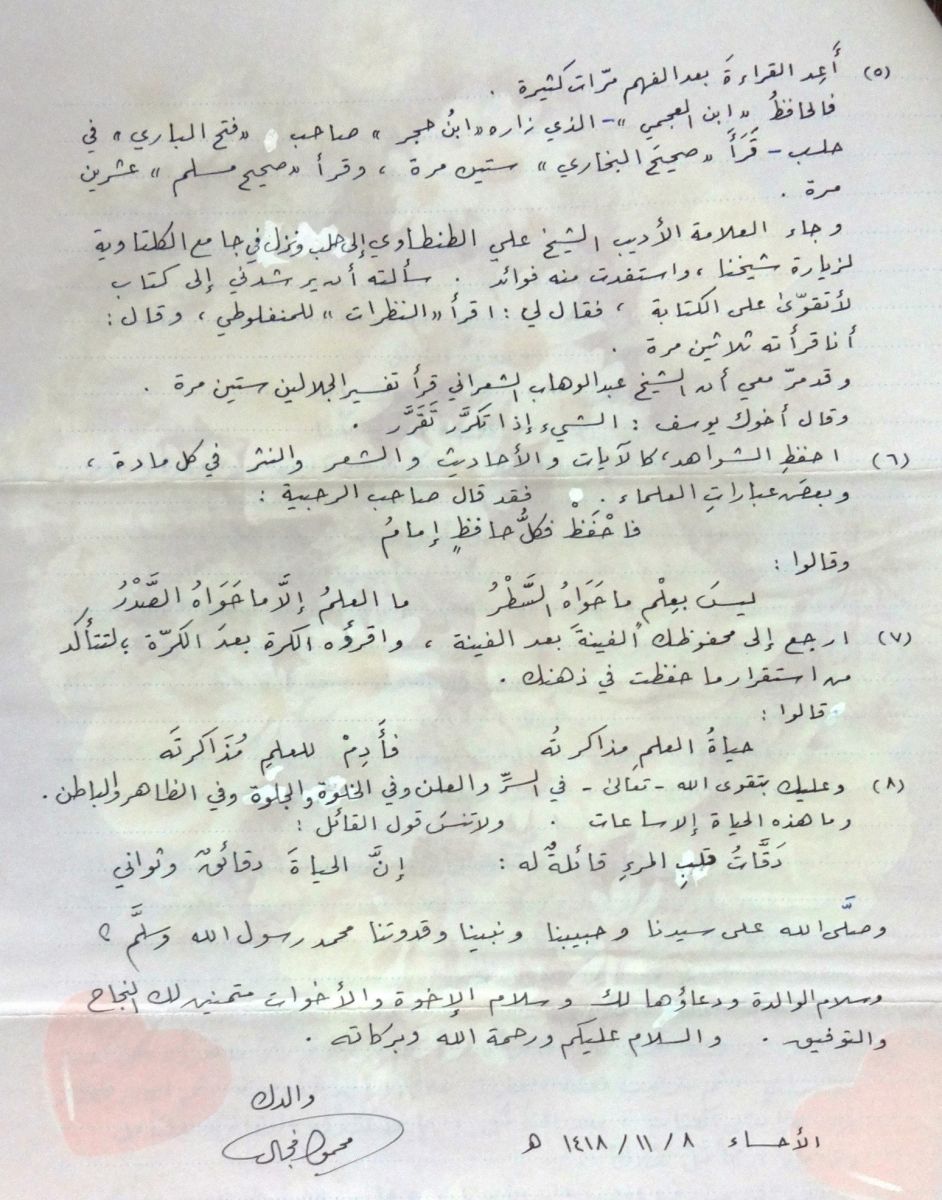 (٥) أَعِد القراءةَ بعد الفهم مرّات كثيرة .
فالحافظُ «ابن العجمي» - الذي زاره «ابنُ حجر» صاحب «فتح الباري» في
حلب - قَرَأَ «صحيحَ البخاري» ستين مرة ، وقرأ «صحيح مسلم» عشرين
مرة .
وجاء العلامة الأديب الشيخ علي الطنطاوي إلى حلب ونزل في جامع الكلتاوية
لزيارة شيخنا ، واستفدت منه فوائد . سألته أن يرشدني إلى كتاب
لأتقوّى على الكتابة ، فقال لي : اقرأ «النظرات» للمنفلوطي ، وقال :
أنا قرأته ثلاثين مرة .
وقد مرّ معي أن الشيخ عبد الوهاب الشعراني قرأ تفسير الجلالين ستين مرة .
وقال أخوك يوسف : الشيء إذا تكرَّر تَقَرَّر .
(٦) احفظِ الشواهد ، كالآيات والأحاديث والشعر والنثر في كل مادة ،
وبعضَ عباراتِ العلماء . فقد قال صاحب الرحبية :
فاحْفَظْ فكلُّ حافظٍ إمامُ
وقالوا :
ليسَ بعِلْمٍ ما حَوَاهُ السَّطْرُ ما العلمُ إلَّا ما حَوَاهُ الصَّدْرُ
(٧) ارجع إلى محفوظك الفينةَ بعد الفينة ، واقرؤه الكرة بعدَ الكرّة ؛ لتتأكد
من استقرار ما حفظت في ذهنك .
قالوا :
حياةُ العلمِ مذاكرتُه فأَدِمْ للعلمِ مُذَاكرتَه
(٨) وعليك بتقوى الله - تعالى - في السرِّ والعلن وفي الخلوة والجلوة وفي الظاهر والباطن .
وما هذه الحياة إلا ساعات . ولا تنسَ قول القائل :
دَقَّاتُ قلبِ المرءِ قائلةٌ له : إنَّ الحياةَ دقائقٌ وثواني
وصلَّى الله على سيدنا وحبيبنا ونبينا وقدوتنا محمد رسول الله وسلَّم ؟
وسلام الوالدة ودعاؤها لك وسلام الإخوة والأخوات متمنين لك النجاح
والتوفيق . والسلام عليكم ورحمة الله وبركاته .
والدك
محمود فجال
الأحساء ٨ / ١١ / ١٤١٨ ه